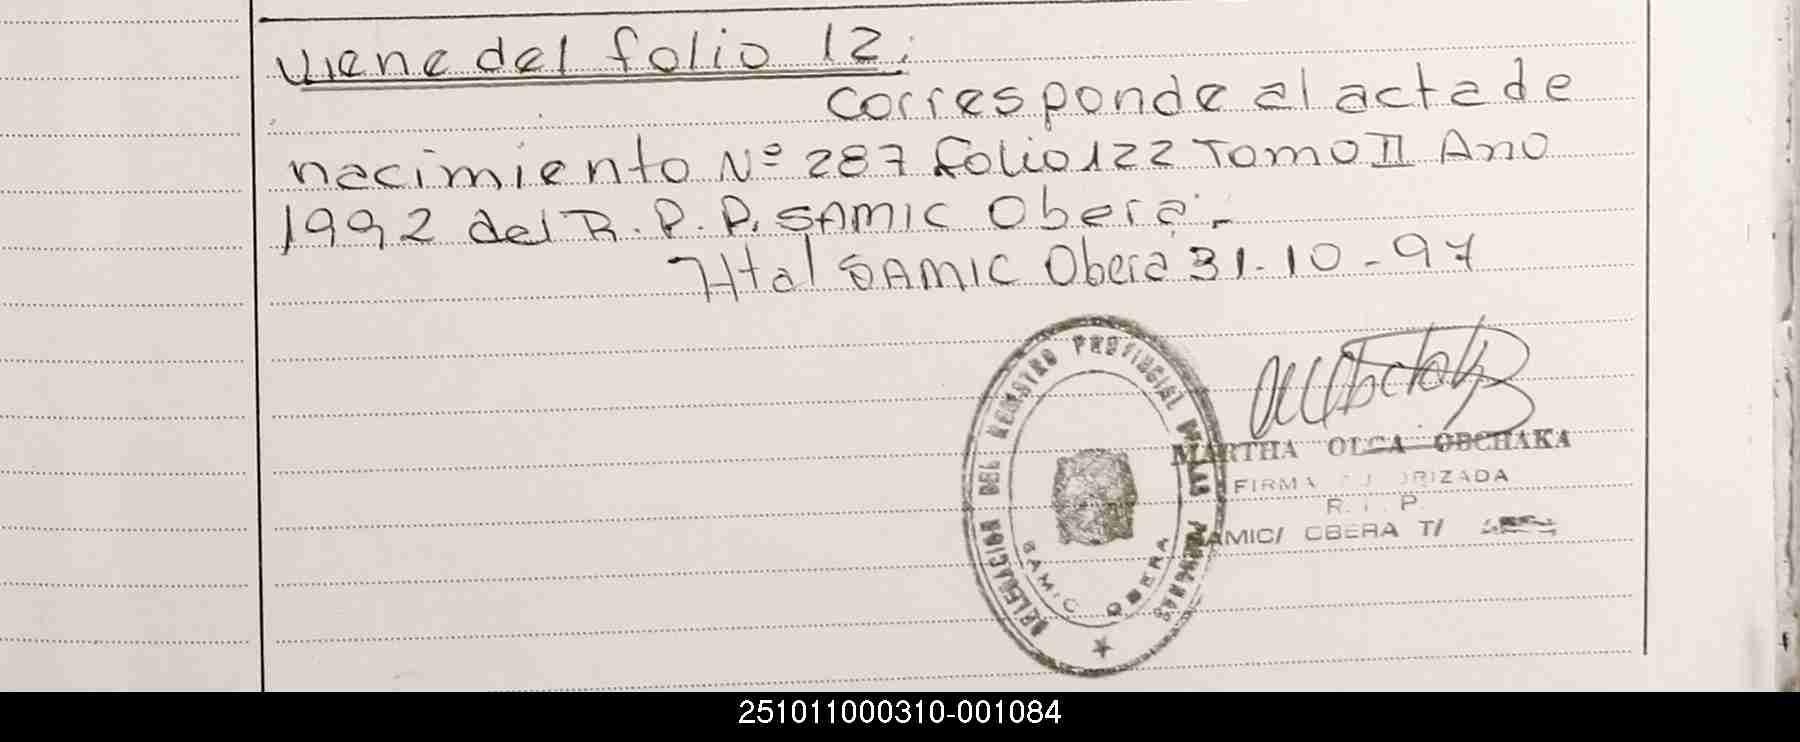 Viene del folio 12:
Corresponde al acta de
nacimiento Nº 287 folio 122 Tomo II Ano
1992 del R.P.P. SAMIC Obera.-
Htal SAMIC Obera 31-10-97
DELEGACION DEL REGISTRO PROVINCIAL DE LAS PERSONAS
SAMIC OBERA
MARTHA OLGA OBCHAKA
FIRMA AUTORIZADA
R. P. P.
SAMIC/ OBERA T/
251011000310-001084